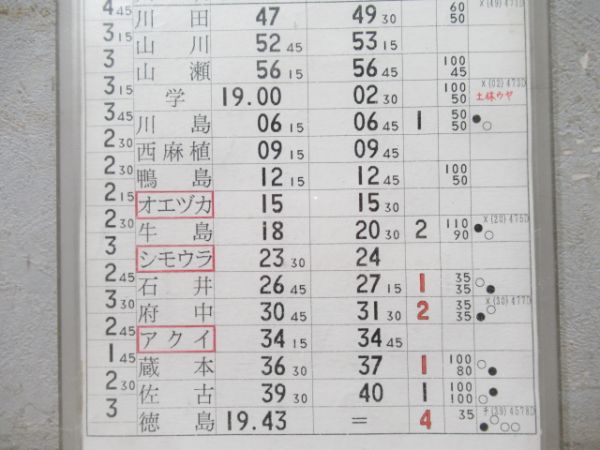 4 45 川田 47 49 30 60 50 ×(49)471D
3 15 山川 52 45 53 15
3 山瀬 56 15 56 45 100 45 ×(02)473D
3 15 学 19.00 02 30 100 50 土休ウヤ
3 45 川島 06 15 06 45 1 50 50 ● ○
2 30 西麻植 09 15 09 45
2 30 鴨島 12 15 12 45 100 50
2 15 オエヅカ 15 15 30
2 30 牛島 18 20 30 2 110 90 ×(20)475D ● ○
3 シモウラ 23 30 24
2 45 石井 26 45 27 15 1 35 35 ○ ●
3 30 府中 30 45 31 30 2 35 35 ×(30)477D ○ ●
2 45 アクイ 34 15 34 45
1 45 蔵本 36 30 37 1 100 80 ○ ●
2 30 佐古 39 30 40 1 100 100 ● ○
3 徳島 19.43 = 4 35 チ(39)4578D ● ○ ○